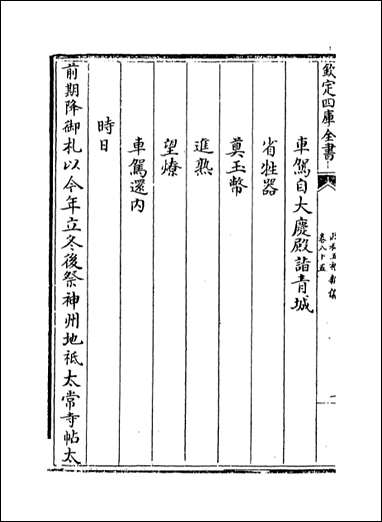 欽定四庫全書
卷八十五
車駕自大慶殿詣青城
省牲器
奠玉幣
進熟
望燎
車駕還内
時日
前期降御札以今年立冬後祭神州地祇太常寺帖太